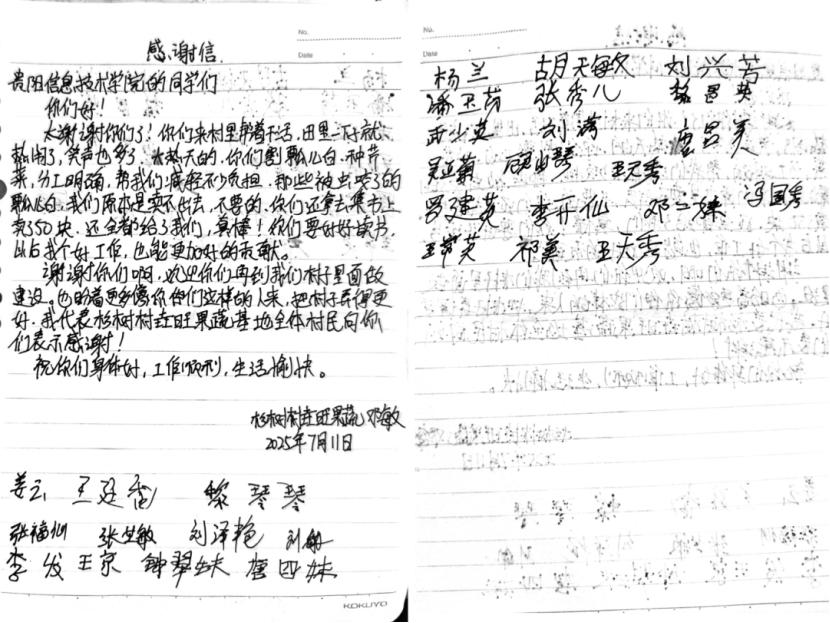 感谢信
No.
Date
贵阳信息技术学院的同学们
你们好！
太谢谢你们了！你们来村里帮着干活，田里一下子就
热闹了，笑声也多了。大热天的，你们割瓢儿白、种芹
菜，分工明确，帮我们减轻不少负担。那些被虫咬了的
瓢儿白，我们原本是卖不出去，不要的，你们还拿去集市上
卖350块，还全都给了我们，真棒！你们要好好读书，
以后找个好工作，也能更加好的贡献。
谢谢你们啊，欢迎你们再到我们村子里面做
建设。也盼着更多像你们这样的人来，把村子弄得更
好。我代表杉树村廷旺果蔬基地全体村民向你
们表示感谢！
祝你们身体好，工作顺利，生活愉快。
杉树村廷旺果蔬 邓敏
2025年7月11日
姜云 王廷香 黎琴琴
张福仙 张生敏 刘泽艳 刘敏
李发 王京 钟翠 唐四妹
KOKUYO
No.
Date
杨兰 胡天敏 刘兴芳
潘卫 张秀儿 英
少英 刘 唐吕美
吴 琴 王天秀
罗建英 李开仙 邓二妹 冯国秀
王 英 祁美 王天秀